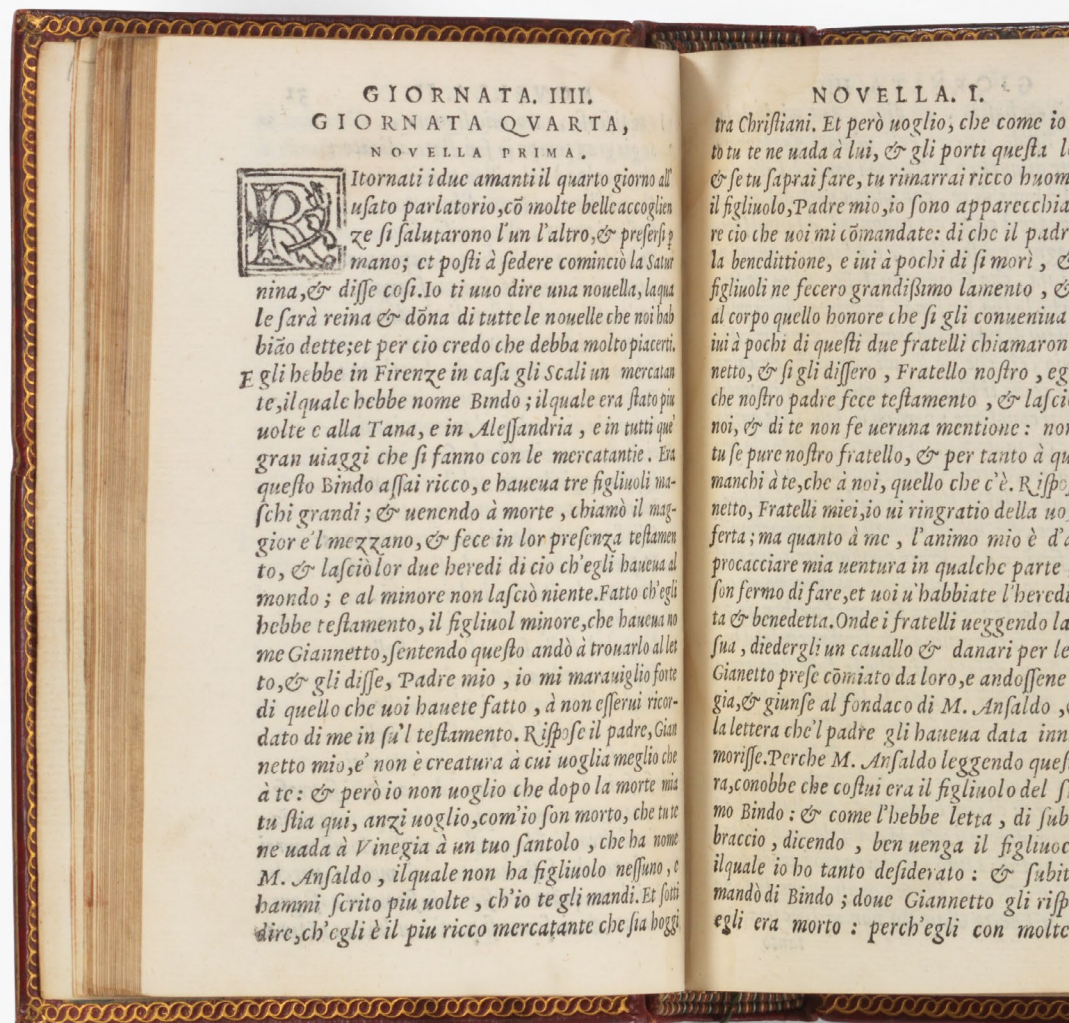 GIORNATA. IIII.
GIORNATA QVARTA,
NOVELLA PRIMA.
RItornati i due amanti il quarto giorno all'
usato parlatorio, cõ molte belle accoglien
ze si salutarono l'un l'altro, & presersi ꝑ
mano; et posti à sedere cominciò la Satur
nina, & disse cosi. Io ti uuo dire una nouella, laqua
le sarà reina & dõna di tutte le nouelle che noi hab
biāo dette; et per cio credo che debba molto piacerti.
Egli hebbe in Firenze in casa gli Scali un mercatan
te, ilquale hebbe nome Bindo; ilquale era stato piu
uolte e alla Tana, e in Alessandria, e in tutti que'
gran uiaggi che si fanno con le mercatantie. Era
questo Bindo assai ricco, e haueua tre figliuoli ma-
schi grandi; & uenendo à morte, chiamò il mag-
gior e'l mezzano, & fece in lor presenza testamen
to, & lasciò lor due heredi di cio ch'egli haueua al
mondo; e al minore non lasciò niente. Fatto ch'egli
hebbe testamento, il figliuol minore, che haueua no
me Giannetto, sentendo questo andò à trouarlo al let
to, & gli disse, Padre mio, io mi marauiglio forte
di quello che uoi hauete fatto, à non esserui ricor-
dato di me in su'l testamento. Rispose il padre, Gian
netto mio, e' non è creatura à cui uoglia meglio che
à te: & però io non uoglio che dopo la morte mia
tu stia qui, anzi uoglio, com'io son morto, che tu te
ne uada à Vinegia à un tuo santolo, che ha nome
M. Ansaldo, ilquale non ha figliuolo nessuno, e
hammi scrito piu uolte, ch'io te gli mandi. Et sotti
dire, ch'egli è il piu ricco mercatante che sia hoggi
NOVELLA. I.
tra Christiani. Et però uoglio, che come io
to tu te ne uada à lui, & gli porti questa l
& se tu saprai fare, tu rimarrai ricco huom
il figliuolo, Padre mio, io sono apparecchia
re cio che uoi mi cōmandate: di che il padr
la benedittione, e iui à pochi di si morì, &
figliuoli ne fecero grandißimo lamento, &
al corpo quello honore che si gli conueniua
iui à pochi di questi due fratelli chiamaron
netto, & si gli dissero, Fratello nostro, eg
che nostro padre fece testamento, & lasciò
noi, & di te non fe ueruna mentione: non
tu se pure nostro fratello, & per tanto à qu
manchi à te, che à noi, quello che c'è. Rispo
netto, Fratelli miei, io ui ringratio della uo
ferta; ma quanto à me, l'animo mio è d'a
procacciare mia uentura in qualche parte,
son fermo di fare, et uoi u'habbiate l'heredi
ta & benedetta. Onde i fratelli ueggendo la
sua, diedergli un cauallo & danari per le
Gianetto prese cōmiato da loro, e andossene
gia, & giunse al fondaco di M. Ansaldo,
la lettera che'l padre gli haueua data inn
morisse. Perche M. Ansaldo leggendo ques
ra, conobbe che costui era il figliuolo del s
mo Bindo: & come l'hebbe letta, di sub
braccio, dicendo, ben uenga il figliuoc
ilquale io ho tanto desiderato: & subit
mandò di Bindo; doue Giannetto gli risp
egli era morto: perch'egli con molte